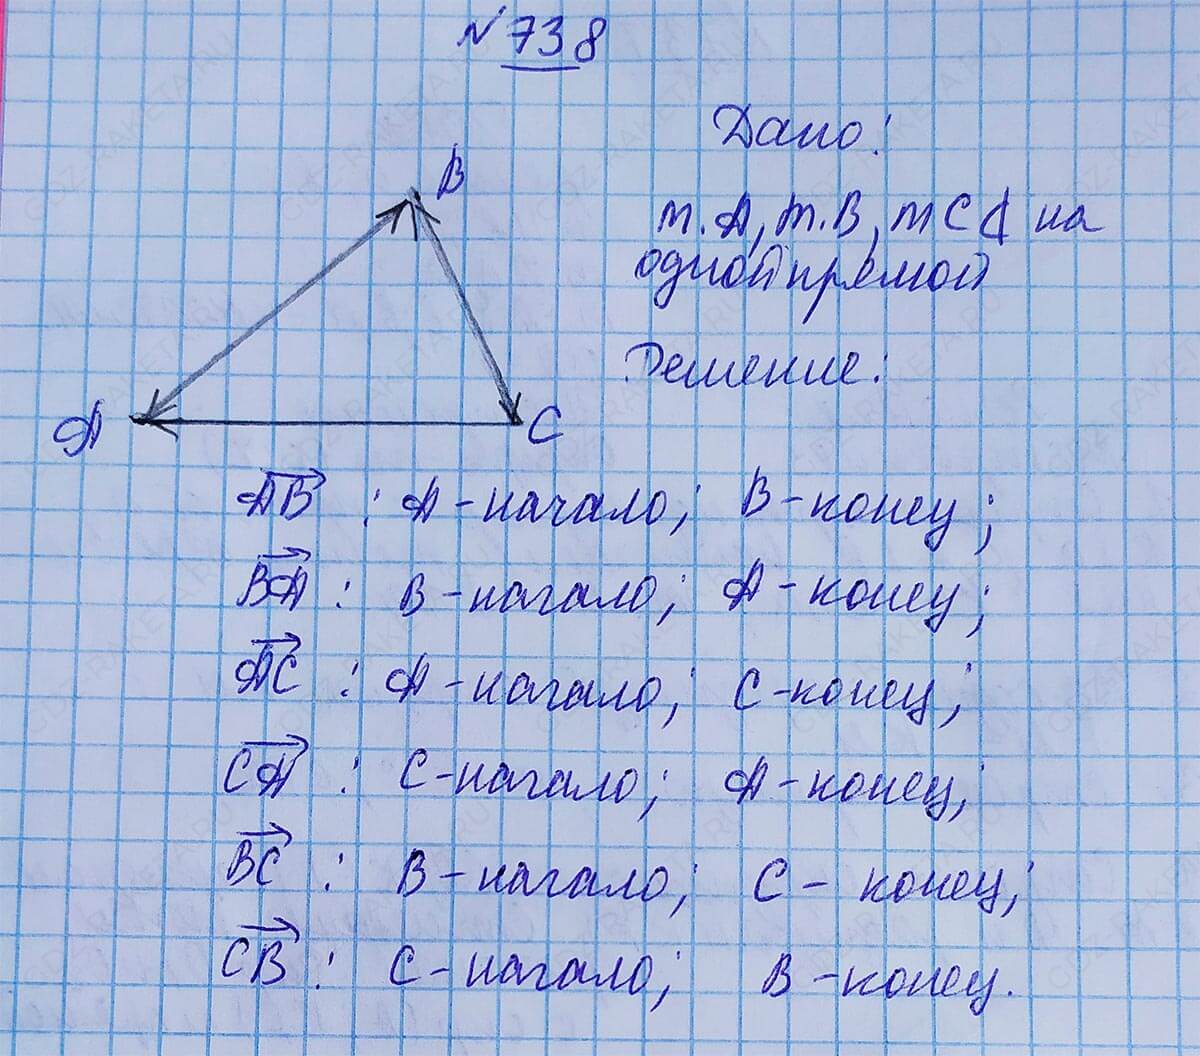 №738
B
A
C
Дано:
т.A, т.B, т C ∉ на
одной прямой
Решение:
AB : A - начало; B - конец;
BA : B - начало; A - конец;
AC : A - начало; C - конец;
CA : C - начало; A - конец;
BC : B - начало; C - конец;
CB : C - начало; B - конец.